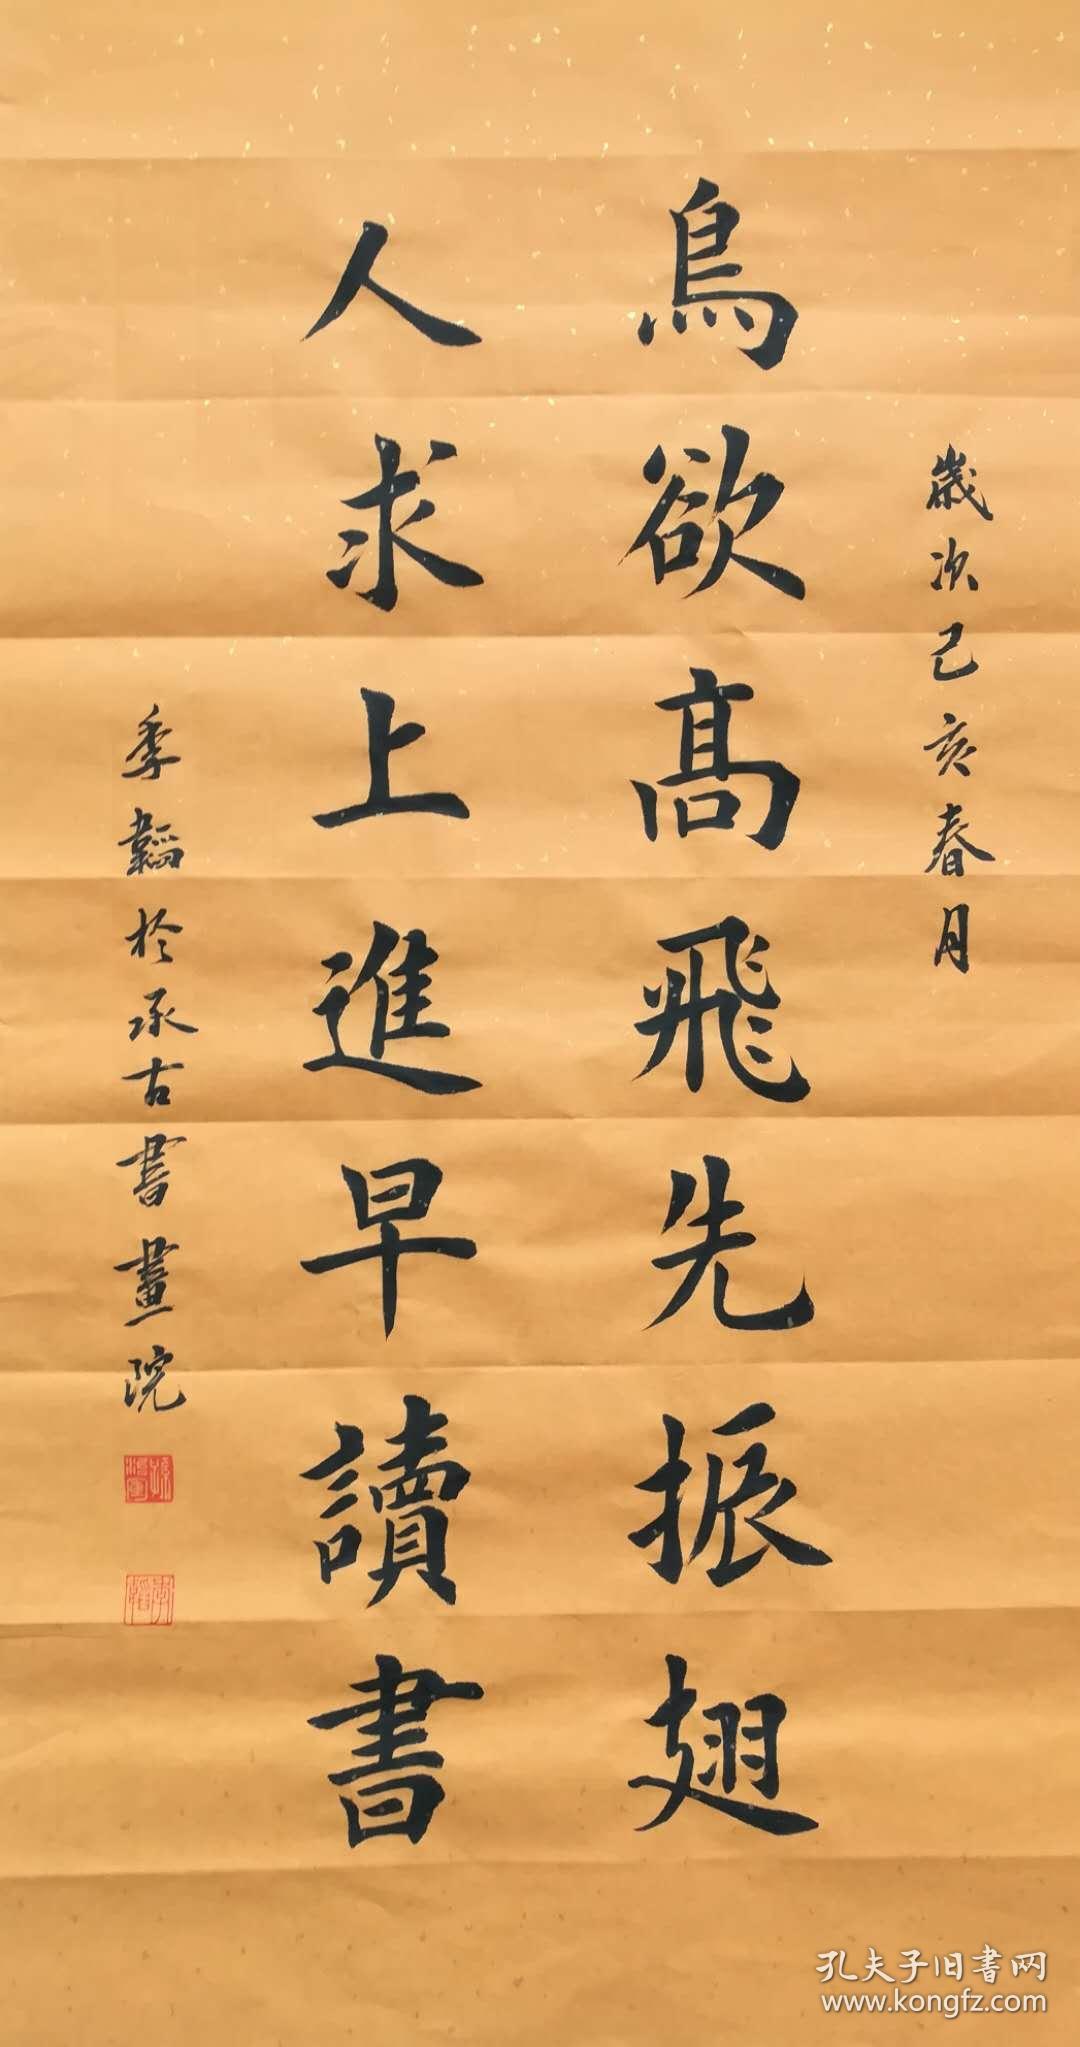 歲次己亥春月
鳥欲高飛先振翅
人求上進早讀書
季韜於承古書畫院
孔夫子旧書网
www.kongfz.com